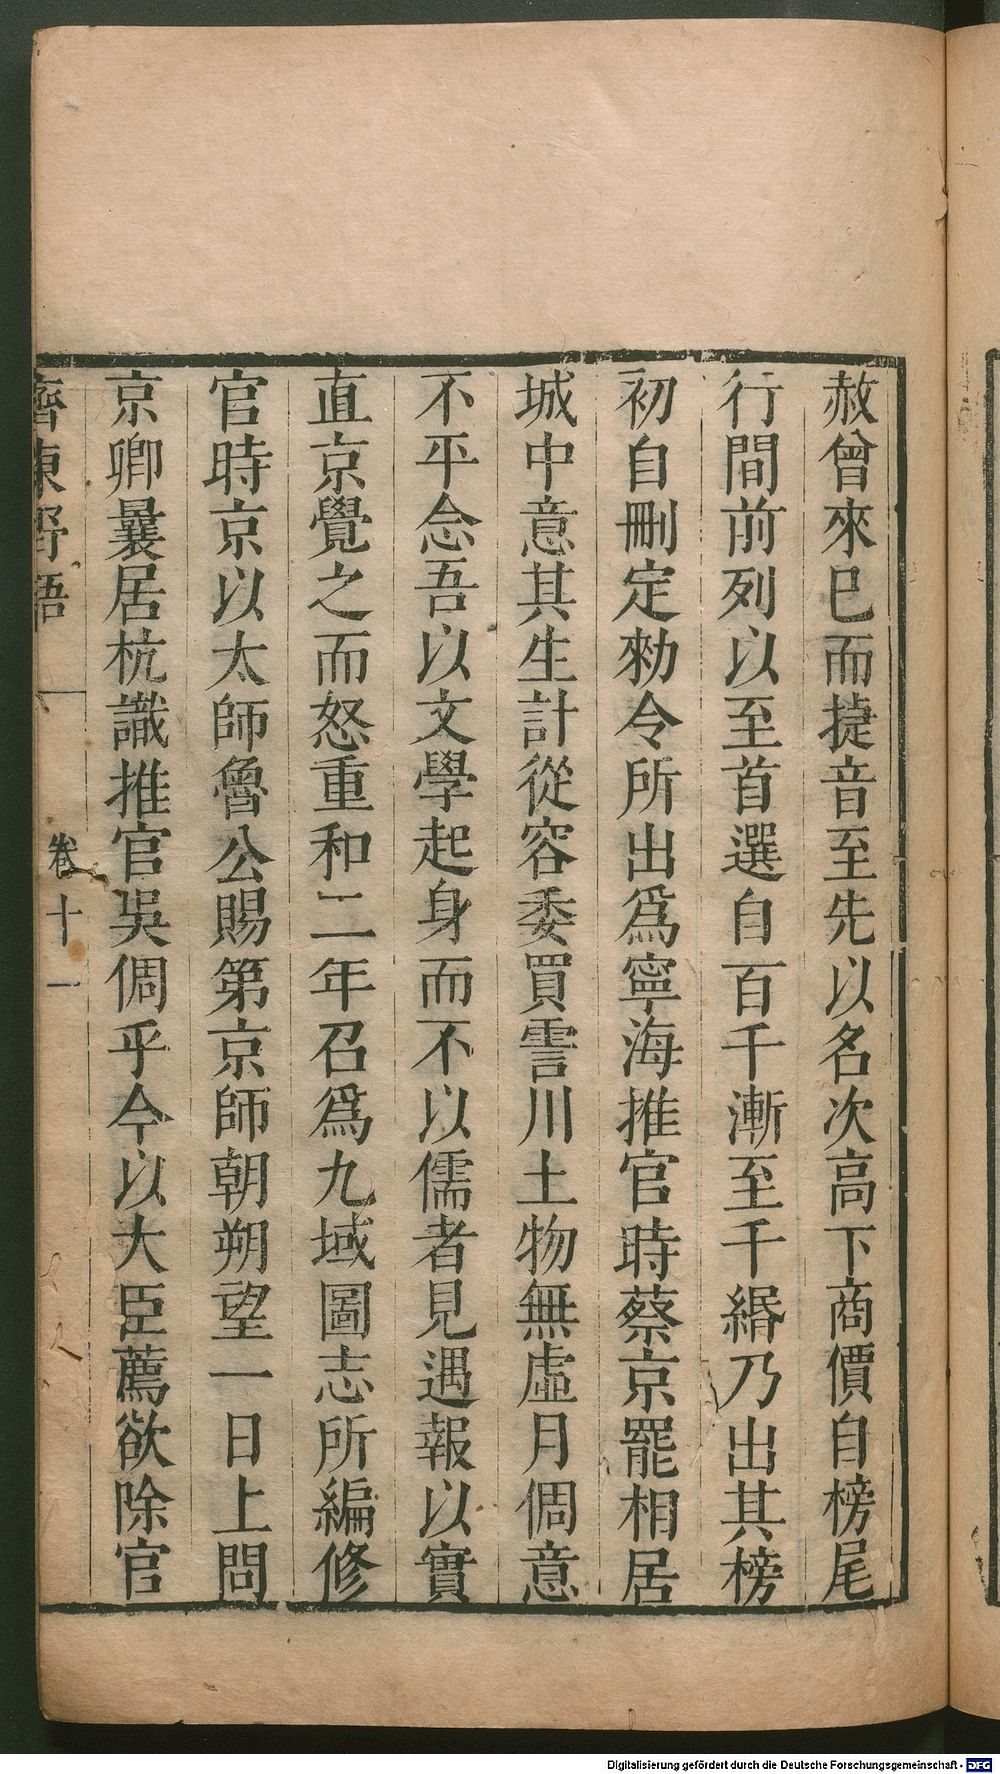 赦曾來已而㨗音至先以名次高下商價自榜尾
行間前列以至首選自百千漸至千緡乃出其榜
初自刪定勑令所出爲寧海推官時蔡京罷相居
城中意其生計從容委買霅川土物無虛月倜意
不平念吾以文學起身而不以儒者見遇報以實
直京覺之而怒重和二年召爲九域圖志所編修
官時京以太師魯公賜第京師朝朔望一日上問
京卿曩居杭識推官吳倜乎今以大臣薦欲除官
齊東野語
卷十一
Digitalisierung gefördert durch die Deutsche Forschungsgemeinschaft - DFG